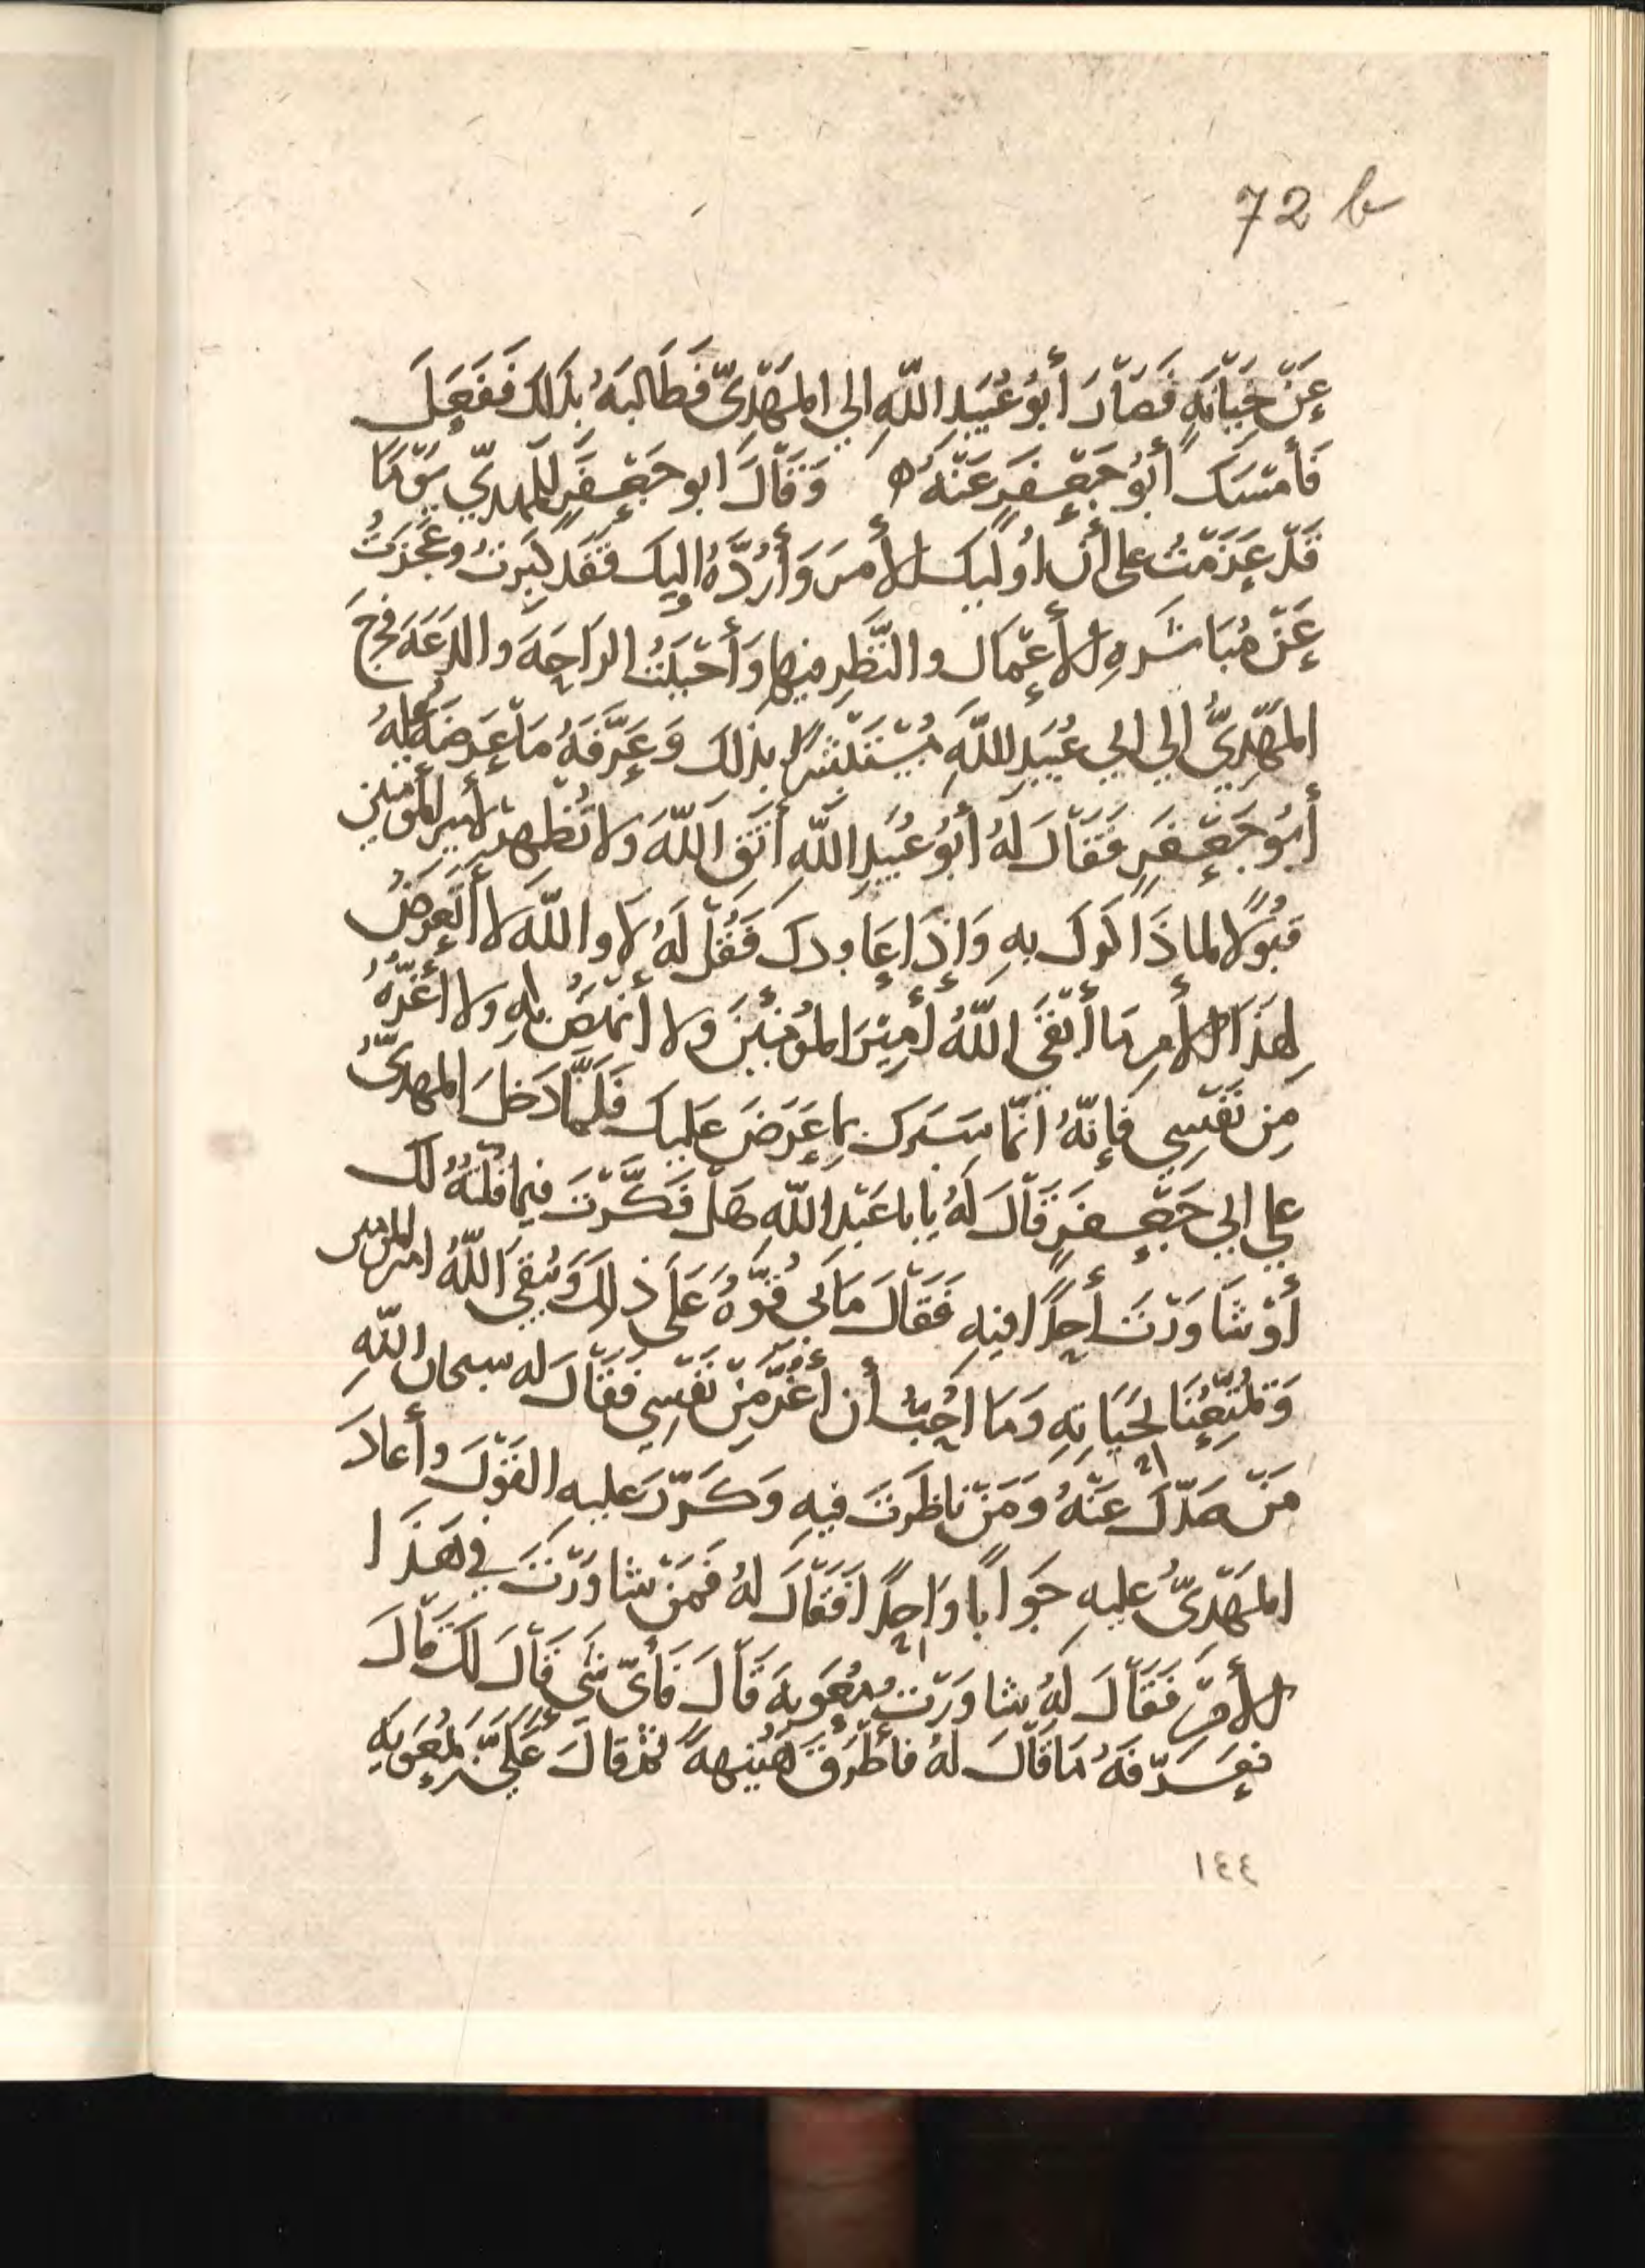 72 b
عَنْ خِيَانَةٍ فَصَارَ أَبُو عُبَيدِ اللّهِ الي المَهْدِيّ فَطَالبَهُ بذلكَ فَفَعَلَ
فَأَمْسَكَ أَبُو جَعْفَرٍ عَنْهُ وَقَالَ ابو جَعْفَرٍ للمهديّ يَوْمًا
قَدْ عَزَمْتُ على أن اُولّيكَ الأَمرَ وَأَرُدَّهُ إليكَ فَقَد كَبِرتُ وعَجَزتُ
عَنْ مُبَاشَرةِ الأَعْمَال والنَّظَرِ فيها وَأَحْبَبْتُ الرَاحَةَ والدَعَةَ فخرجَ
المَهْدِيُّ الي ابي عُبَيدِ اللّهِ مُسْتَبْشِرًا بذلكَ وَعَرَّفَهُ مَا عَرَضَهُ عليهِ
أَبُو جَعْفَرٍ فَقَالَ لهُ أبُو عُبَيدِ اللّهِ أتّقِ اللّهَ ولا تُظْهِرْ لأَميرِ المؤمنين
قبُولًا لما ذَاكرك بهِ وَإذَا عَاودك فَقُلْ لَهُ لَا واللّهِ لا أتَعرضُ
لِهَذَا الأَمرِ مَا أَبْقَى اللّهُ أَمِيْرَ المُؤمِنِيْنَ ولا أنْهَضُ بهِ ولا أغُرُّهُ
مِن نَفْسِي فَإنّهُ انّمَا سَبَرك بمَا عَرَضَ عَلَيك فَلَمَّا دَخلَ المهديّ
علي ابي جَعْفَرٍ قَالَ لَهُ يابا عَبْدِ اللّهِ هَلْ فَكَّرْتَ فيما قلتُهُ لك
أَوْ شَاوَرْتَ أَحدًا فيهِ فَقَالَ مَا بي قُوَّةٌ عَلَى ذلكَ وَيُبْقِي اللّهُ امير المؤمنين
وَيُمَتِّعُنَا بحَيَاتهِ وَمَا اُحِبُّ أن أَغُرَّ مِنْ نَفْسِي فَقَالَ له سبحان اللّهِ
مَنْ صَدّكَ عَنْهُ وَمَنْ نَاظَرتَ فيهِ وَكَرّرَ عليهِ القَوْلَ وأعادَ
المَهْدِيّ عليهِ جَوَابًا وَاحِدًا فَقَالَ لهُ فَمَنْ شاوَرْتَ في هَذَا
الأَمْرِ فَقَالَ لَهُ شاوَرْتُ مُعَوِيةَ قَالَ فَأَيّ شَي قَالَ لَكَ قَالَ
فعَرّفَهُ مَا قَالَ لهُ فَأطْرَقَ هُنَيْهةً ثمّ قالَ عَليّ بمُعَوِيةِ
١٤٤